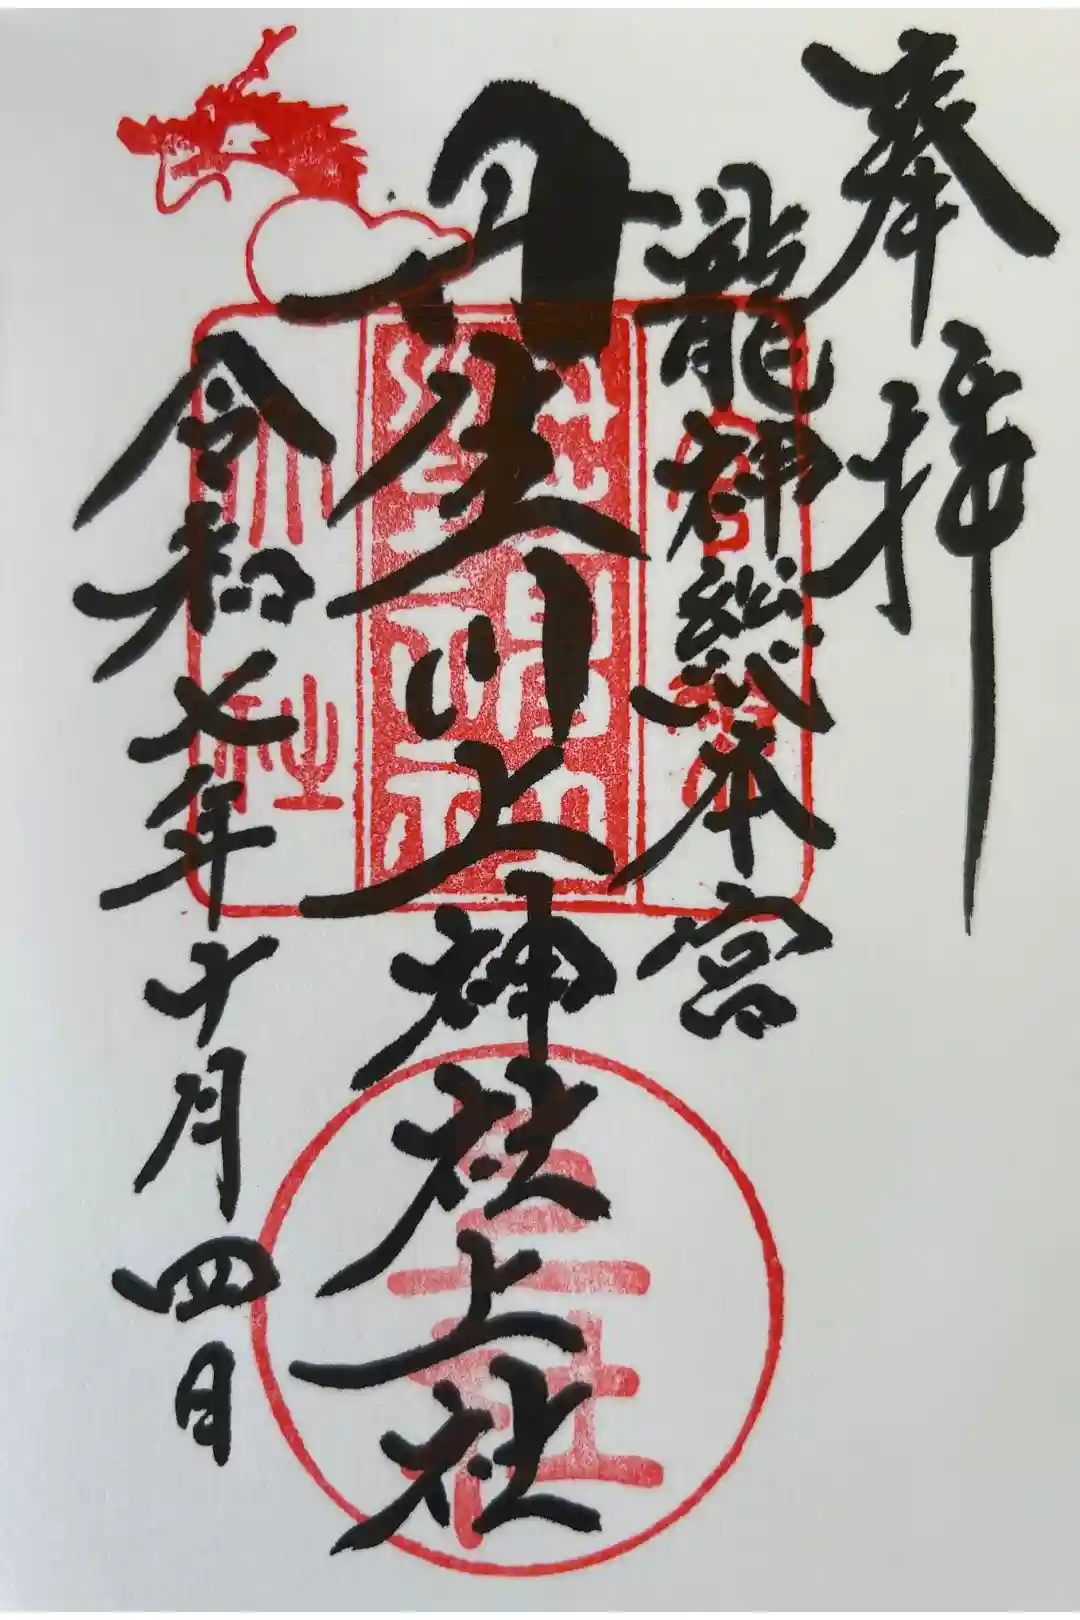 奉拝
龍神総本宮
丹生川上神社上社
令和七年十月四日
官幣
大社